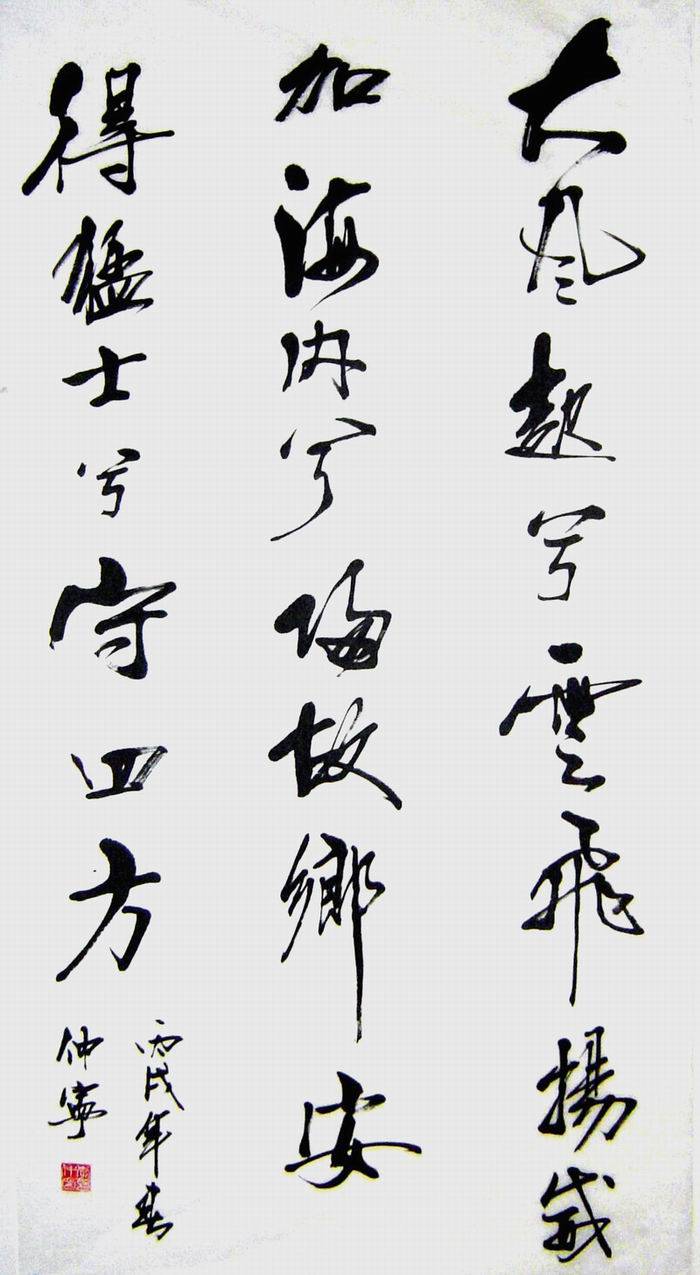 大风起兮雲飛揚威
加海内兮歸故鄉安
得猛士兮守四方
丙戌年春
仲寧